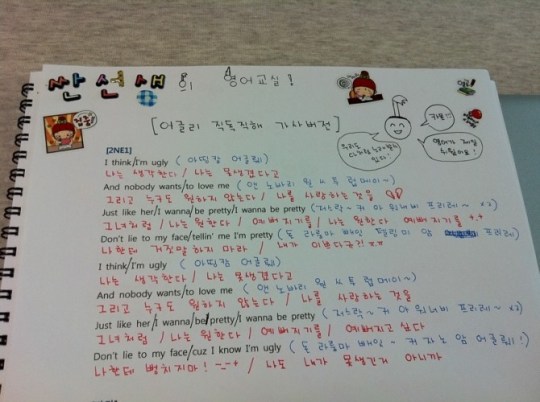 산선생의 영어교실!
[어글리 직독직해 가사버전]
[2NE1]
I think/I'm ugly (아띵캄 어글뤼)
나는 생각한다 / 나는 못생겼다고
And nobody wants/to love me (앤 노바리 원 쓰 투 럽메이~)
그리고 누구도 원하지 않는다 / 나를 사랑하는 것을
Just like her/I wanna/be pretty/I wanna be pretty
그녀처럼 / 나는 원한다 / 예뻐지기를 / 나는 원한다 예뻐지기를
Don't lie to my face/tellin' me I'm pretty
나한테 거짓말 하지 마라 / 내가 이쁘다구?!
I think/I'm ugly (아띵캄 어글뤼)
나는 생각한다 / 나는 못생겼다고
And nobody wants/to love me (앤 노바리 원 쓰 투 럽메이~)
그리고 누구도 원하지 않는다 / 나를 사랑하는 것을
Just like her/I wanna/be/pretty/I wanna be pretty
그녀처럼 / 나는 원한다 / 예뻐지기를 / 예뻐지고 싶다
Don't lie to my face/cuz I know I'm ugly
나한테 뻥치지마! / 나도 내가 못생긴거 아니까